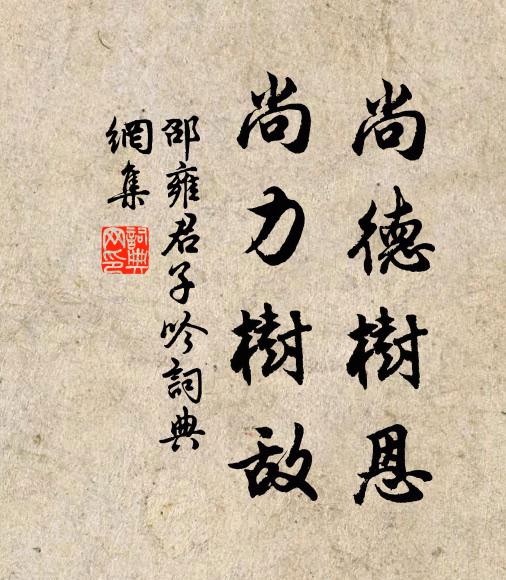 尚德樹恩
尚力樹敌
邵雍君子吟詞典
網集
詞典網印